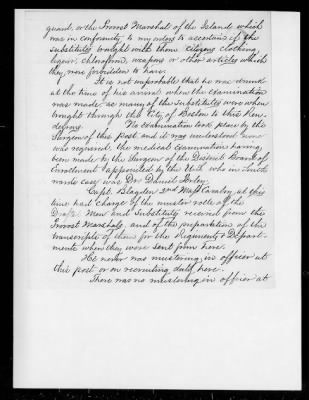 guard, or the Provost Marshals of the Island which
was in conformity to my orders to ascertain if the
substitutes brought with them citizens clothing,
liquor, chloroform, weapons or other articles which
they were forbidden to have.
It is not improbable that he was drunk
at the time of his arrival when the examination
was made, as many of the Substitutes were when
brought through this City of Boston to this Ren-
dezvous. No examination took place by the
Surgeon of this post and it was understood none
was required, the medical examination having
been made by the Surgeon of the District Board of
Enrollment appointed by the U.S. who in
case was Dr. Daniel
Capt. Blagden 2nd Mass Cavalry, at this
time had charge of the muster rolls of the
Drafted Men and Substitutes received from the
Provost Marshals, and of the preparation of the
transcripts of them for the Regiments & Depart-
ments when they were sent from here.
He never was mustering in officer at
this post or on recruiting duty here.
There was no mustering in officer at